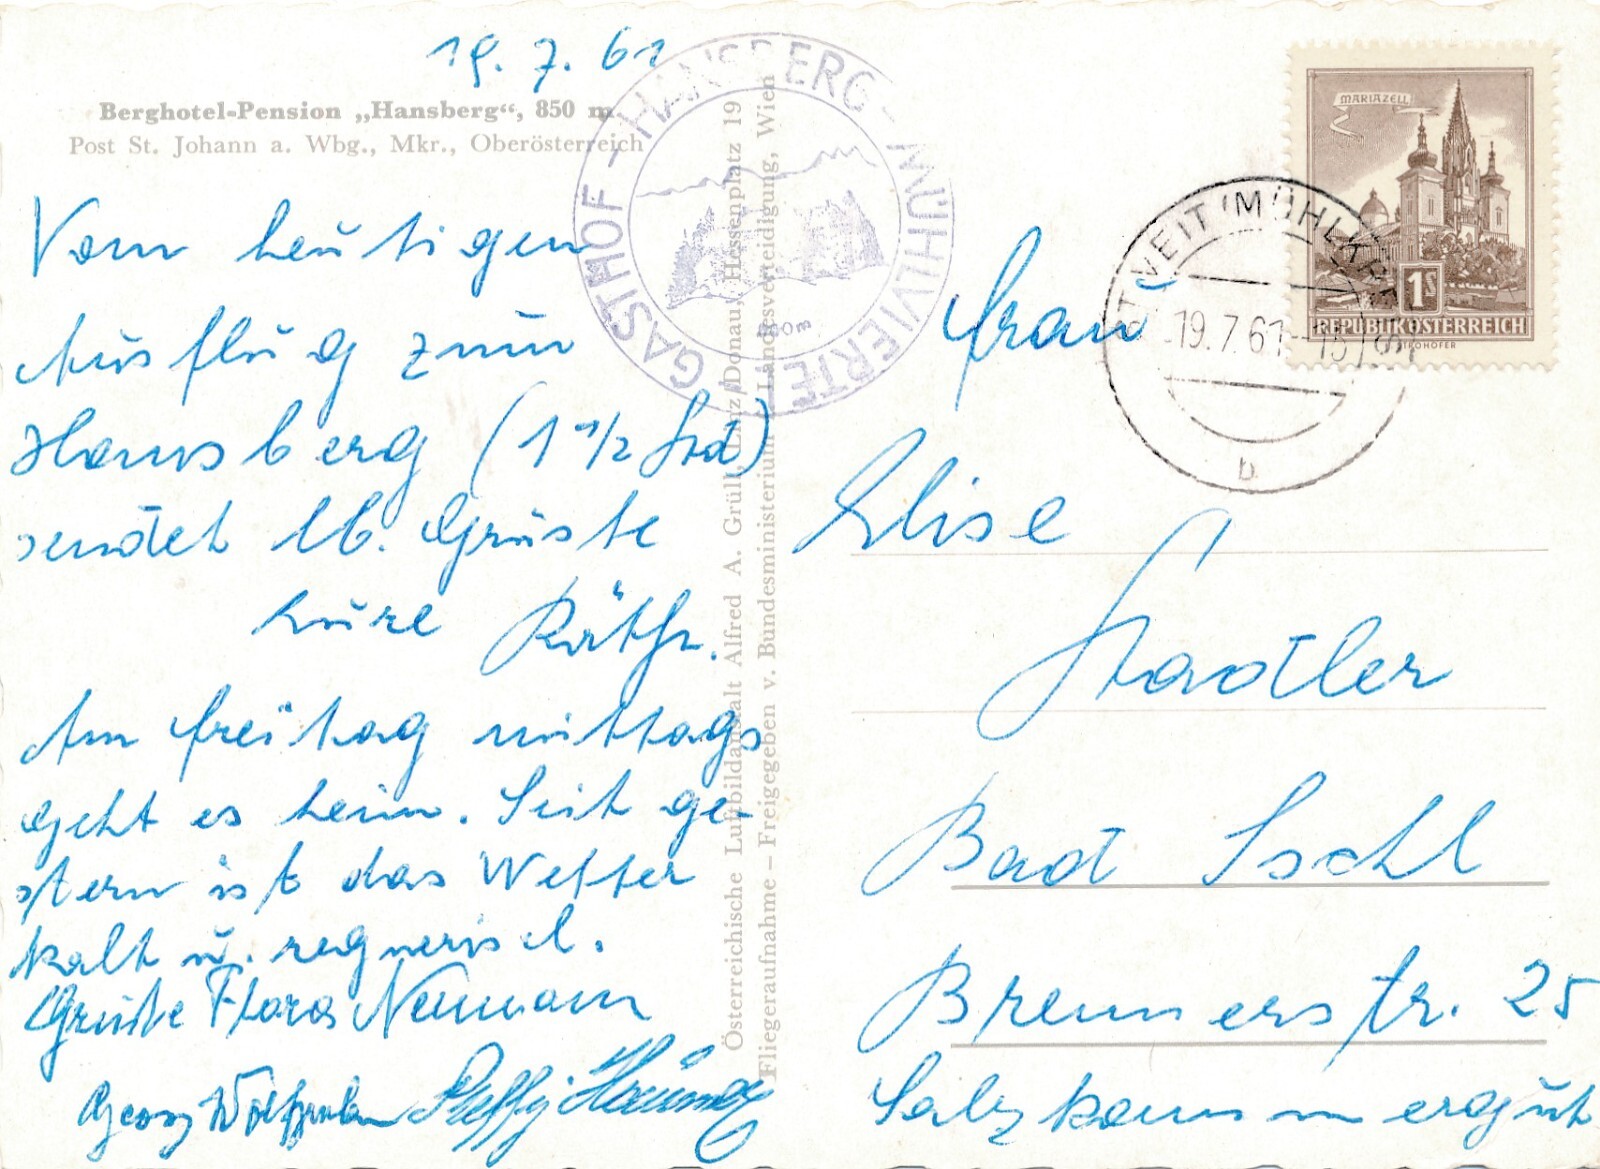 19.7.61
Berghotel-Pension „Hansberg“, 850 m
Post St. Johann a. Wbg., Mkr., Oberösterreich
Vom heutigen
Ausflug zum
Hansberg (1 1/2 Std)
sendet lb. Grüsse
Eure Käthe.
Am Freitag mittags
geht es heim. Seit ge-
stern ist das Wetter
kalt u. regnerisch.
Grüße Flora Neumann
Georg
Steffy
GASTHOF - HANSBERG - MÜHLVIERTEL
Österreichische Luftbildanstalt Alfred A. Grüll, Linz/Donau, Hessenplatz 19
Fliegeraufnahme – Freigegeben v. Bundesministerium f. Landesverteidigung, Wien
MARIAZELL
1S
REPUBLIK ÖSTERREICH
ST. VEIT / MÜHLKREIS
19.7.61-15
b
Frau
Elise
Stadler
Bad Ischl
Brennerstr. 25
Salzkammergut